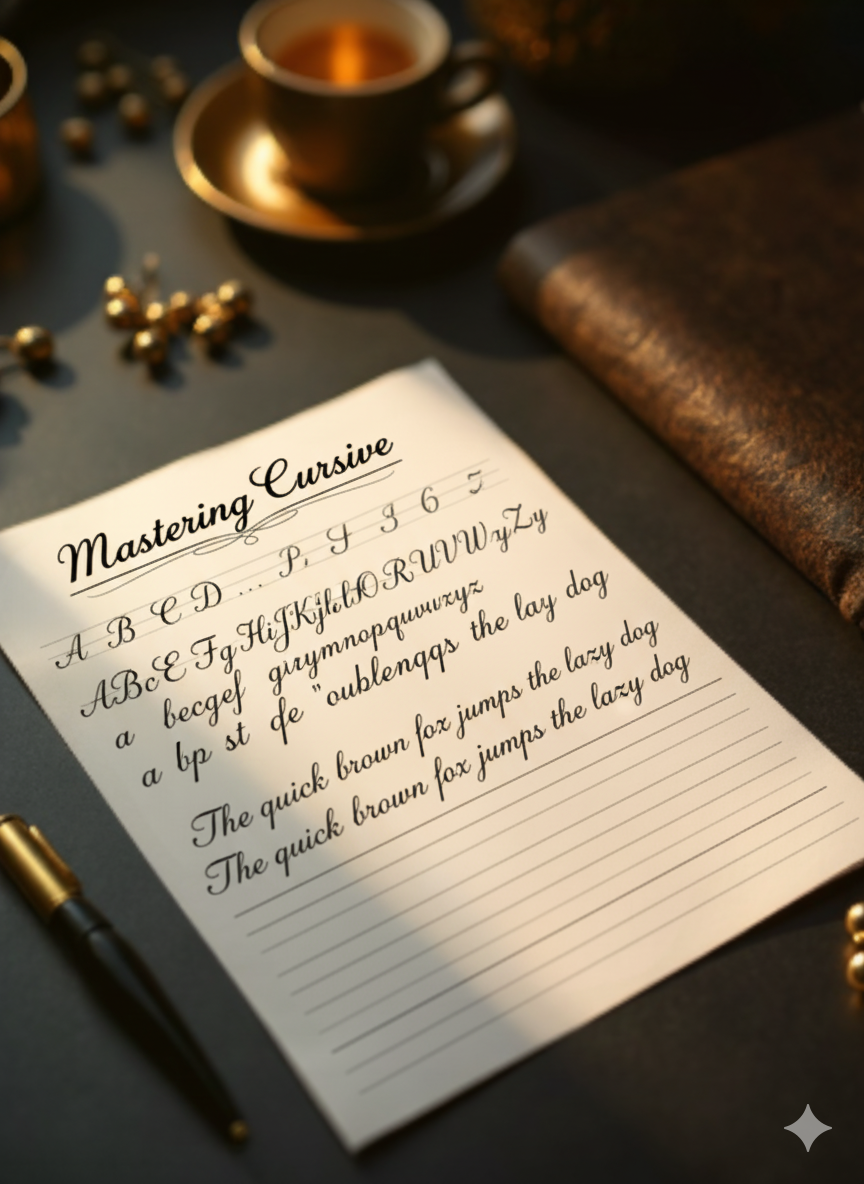 Mastering Cursive
A B C D ... P, I I 6
ABcE Fg HiJKjkltO R U V W xyZy
a becgef giıymnopquwuxyz
a bp st de "oublengqs the lay dog
The quick brown fox jumps the lazy dog
The quick brown fox jumps the lazy dog